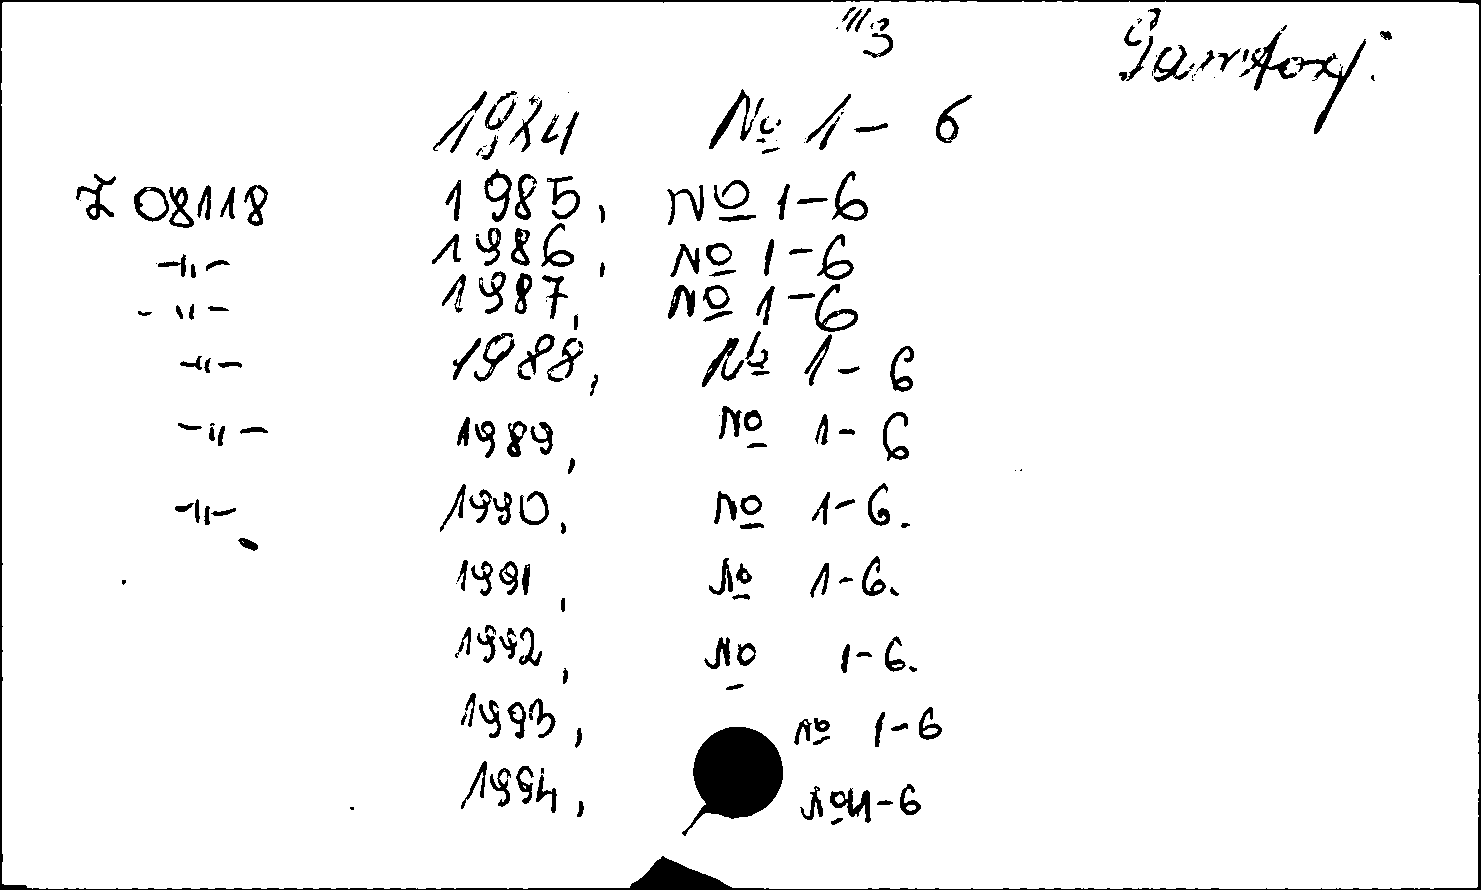 III 3
1984 № 1-6
Z 08118 1985, № 1-6
-"- 1986, № 1-6
-"- 1987, № 1-6
-"- 1988, № 1-6
-"- 1989, № 1-6
-"- 1990, № 1-6.
1991, № 1-6.
1992, № 1-6.
1993, № 1-6
1994, № 1-6